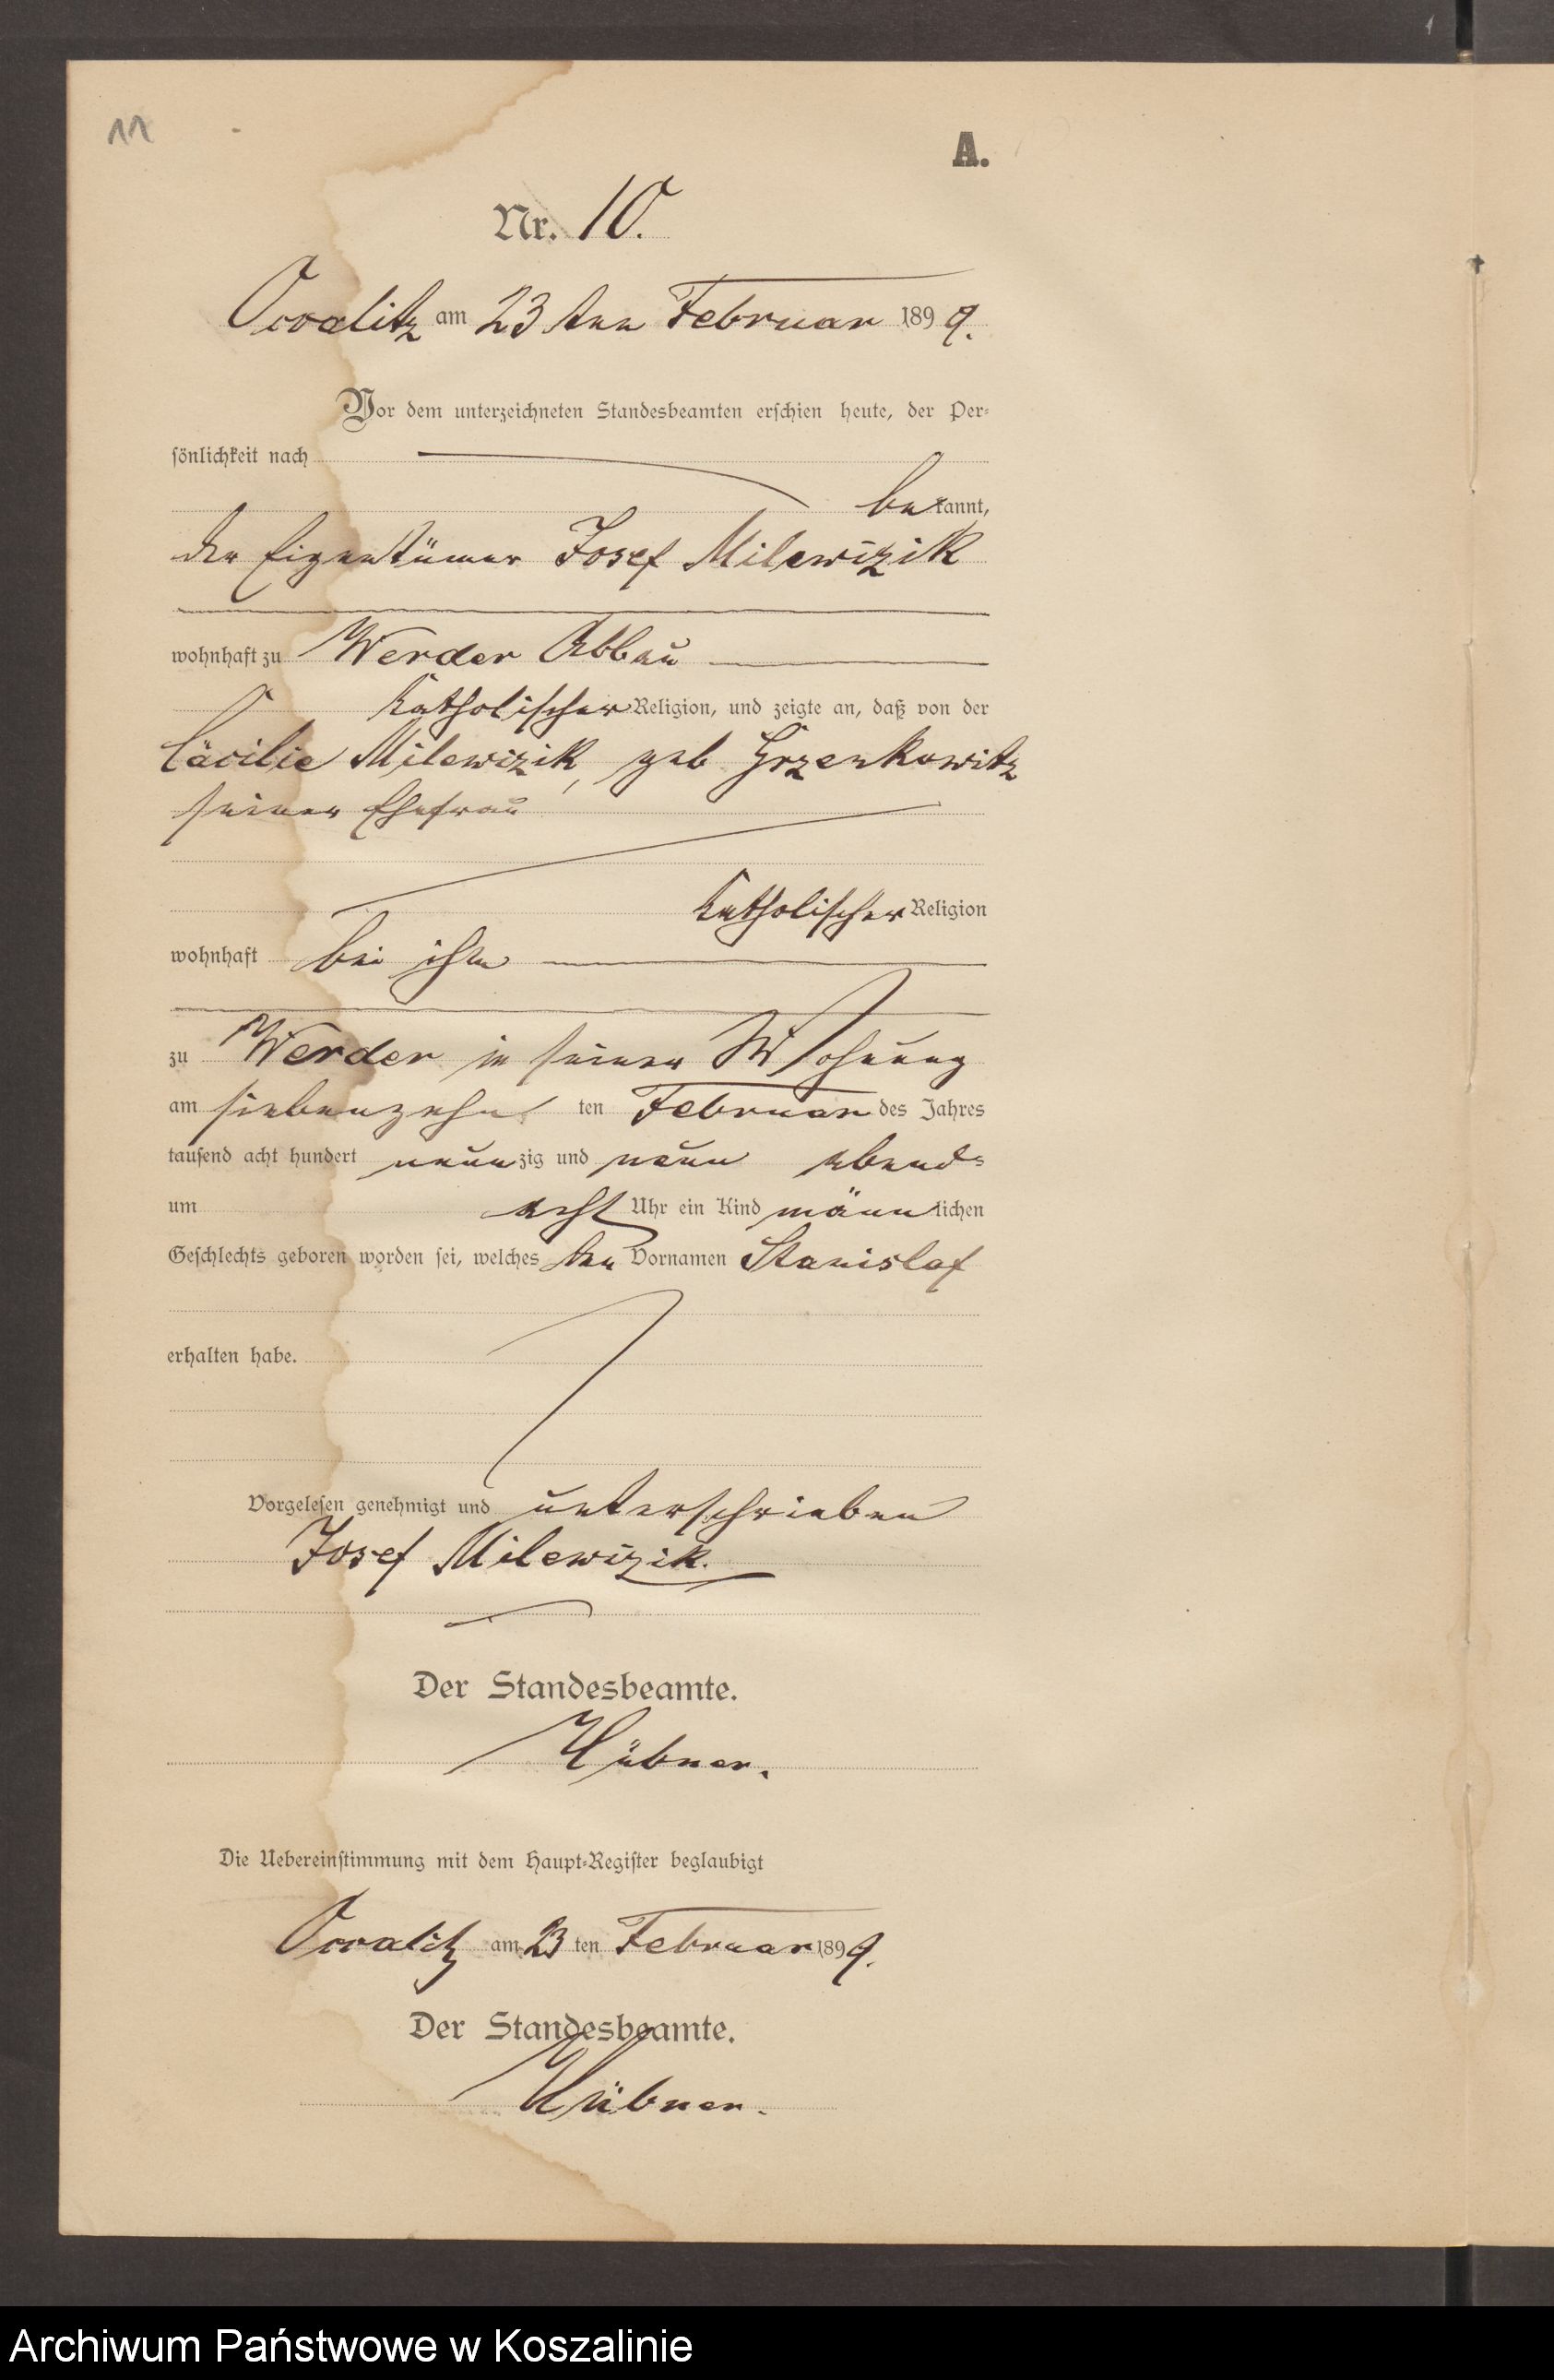 11
A.
Nr. 10.
Ossalitz am 23 ten Februar 1899.
Vor dem unterzeichneten Standesbeamten erschien heute, der Per-
sönlichkeit nach
bekannt,
der Eigentümer Josef Milewizik
wohnhaft zu Werder Abbau
katholischer Religion, und zeigte an, daß von der
Cäcilie Milewizik, geb Grzenkowitz
seiner Ehefrau
katholischer Religion
wohnhaft bei ihm
zu Werder in seiner Wohnung
am siebenzehn ten Februar des Jahres
tausend acht hundert neunzig und neun abends
um acht Uhr ein Kind männlichen
Geschlechts geboren worden sei, welches den Vornamen Stanislaf
erhalten habe.
Vorgelesen genehmigt und unterschrieben
Josef Milewizik.
Der Standesbeamte.
Hübner.
Die Uebereinstimmung mit dem Haupt-Register beglaubigt
Ossalitz am 23 ten Februar 1899.
Der Standesbeamte.
Hübner.
Archiwum Państwowe w Koszalinie